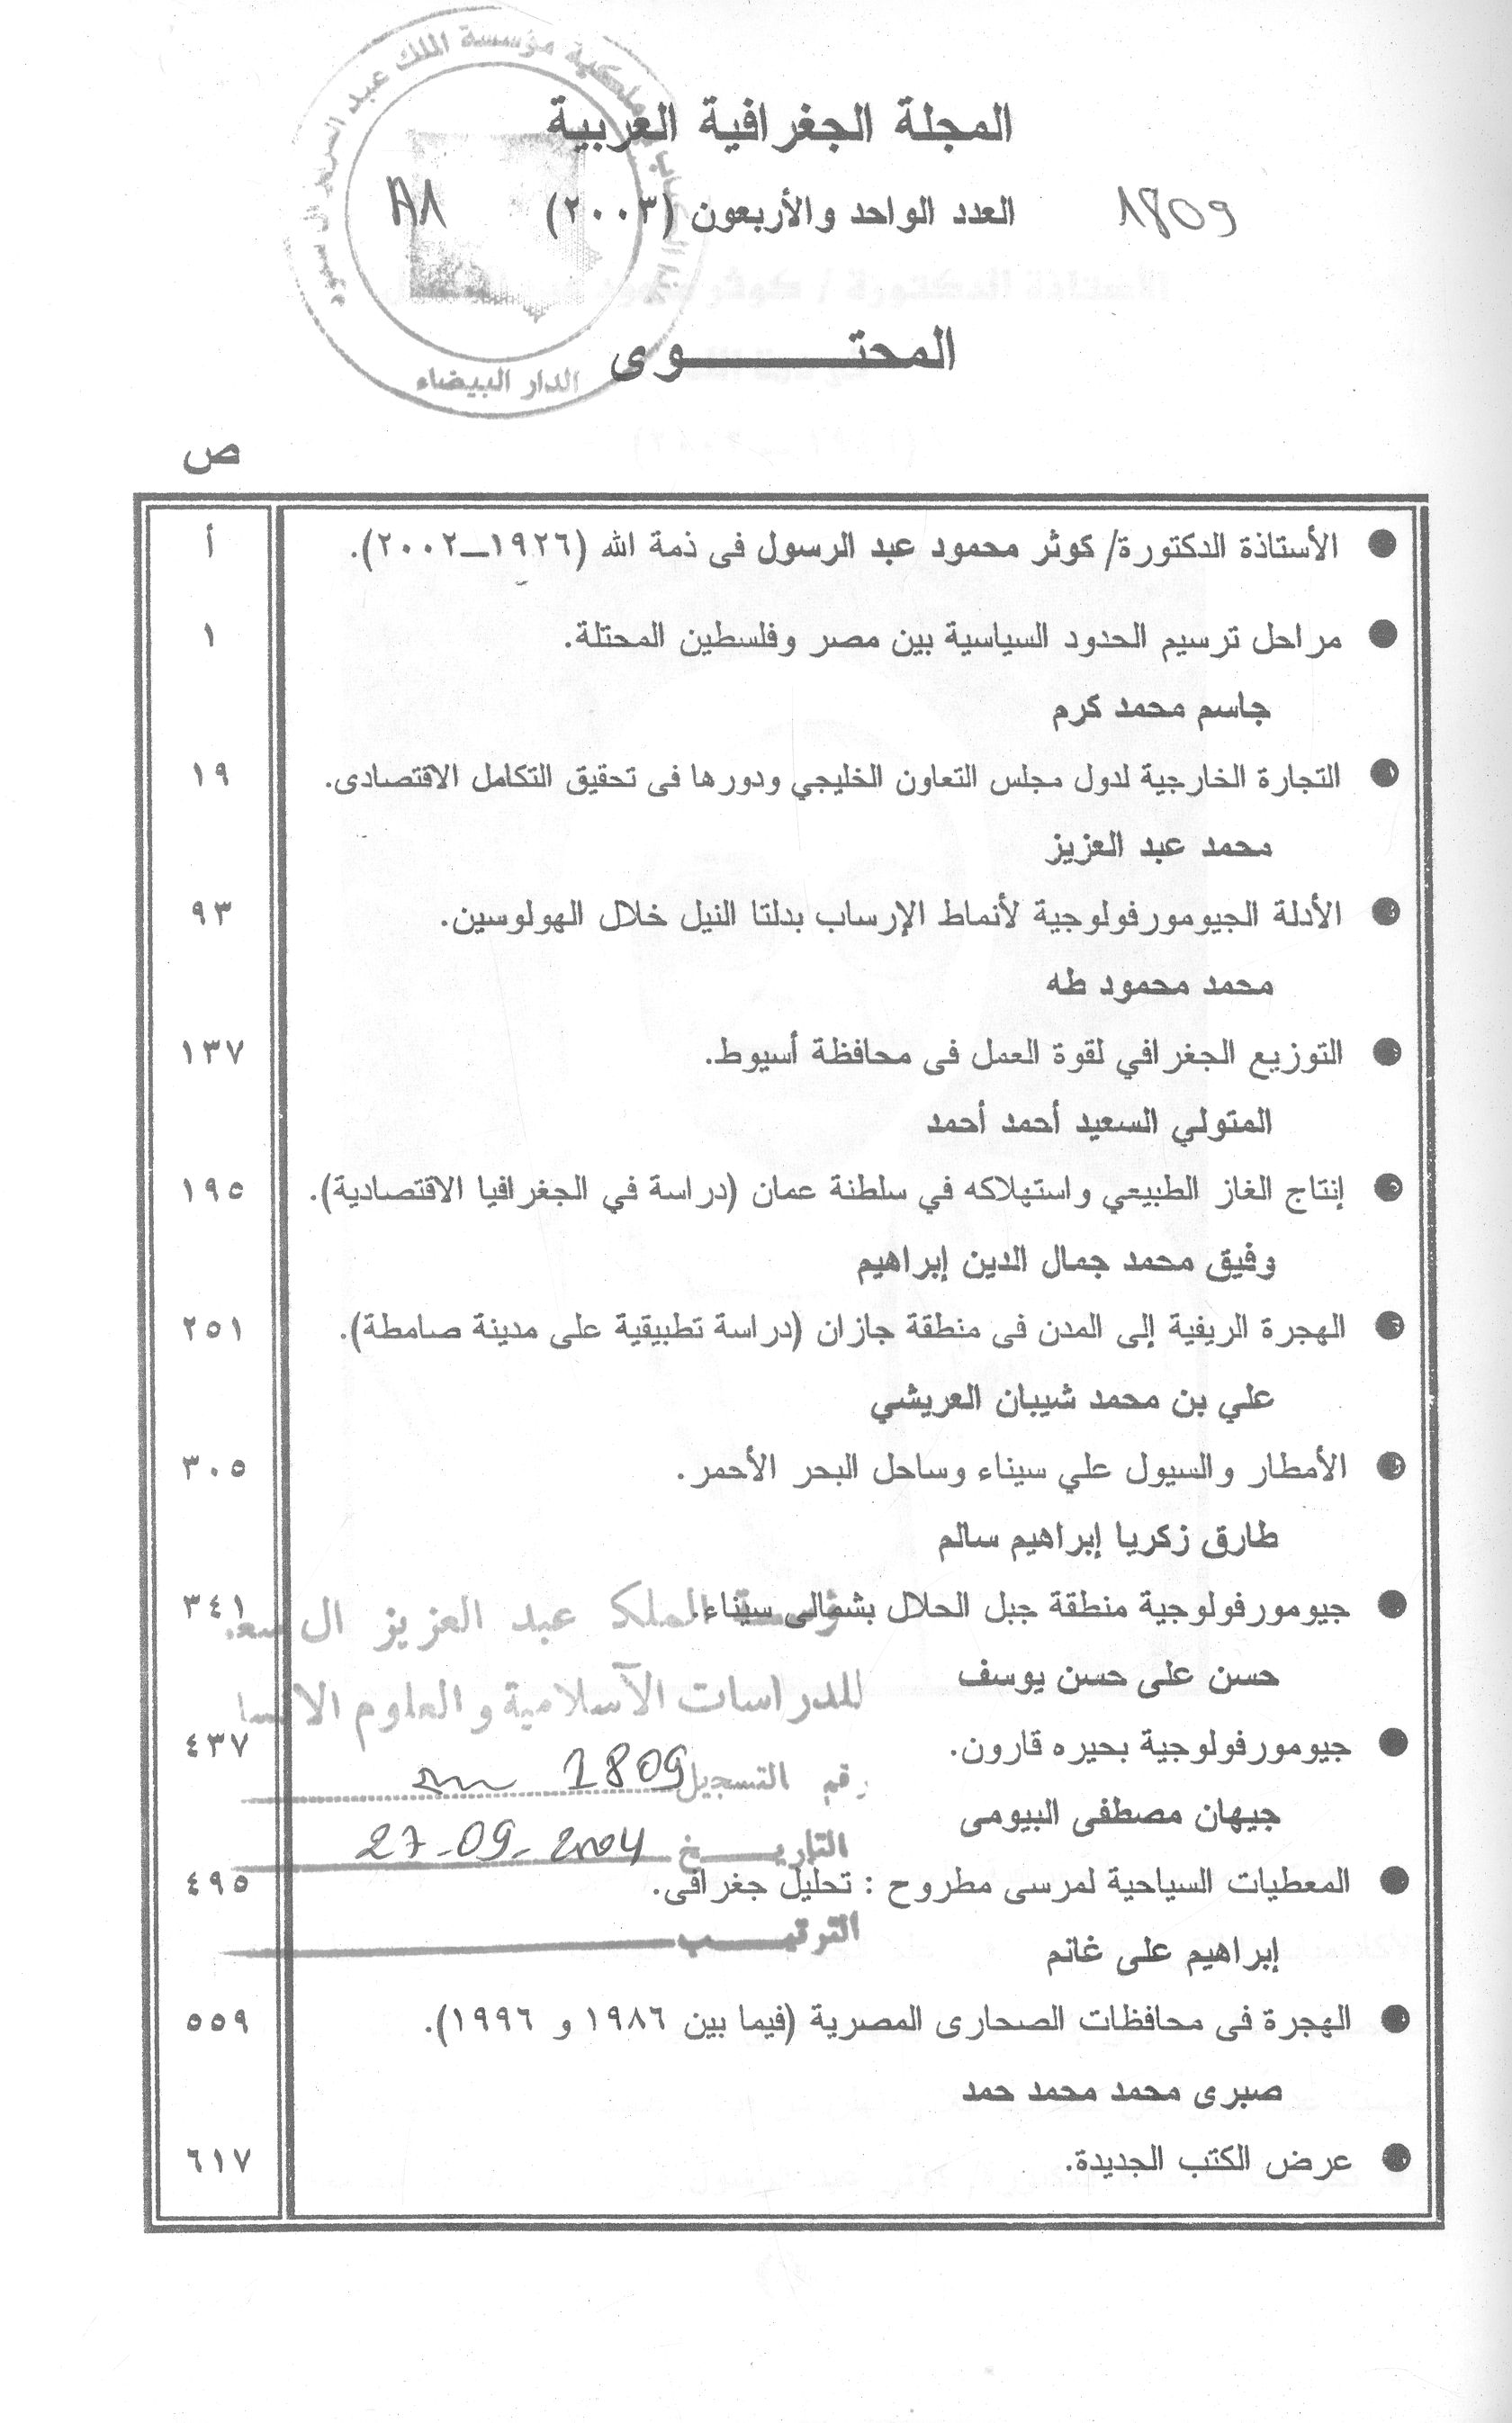 المجلة الجغرافية العربية
1809 العدد الواحد والأربعون (٢٠٠٣) A1
مؤسسة الملك عبد العزيز ال سعود
الدار البيضاء
المحتـــــــوى
ص
الأستاذة الدكتورة/ كوثر محمود عبد الرسول فى ذمة الله (١٩٢٦_٢٠٠٢). أ
مراحل ترسيم الحدود السياسية بين مصر وفلسطين المحتلة. ١
جاسم محمد كرم
التجارة الخارجية لدول مجلس التعاون الخليجي ودورها فى تحقيق التكامل الاقتصادى. ١٩
محمد عبد العزيز
الأدلة الجيومورفولوجية لأنماط الإرساب بدلتا النيل خلال الهولوسين. ٩٣
محمد محمود طه
التوزيع الجغرافي لقوة العمل فى محافظة أسيوط. ١٣٧
المتولي السعيد أحمد أحمد
إنتاج الغاز الطبيعي واستهلاكه في سلطنة عمان (دراسة في الجغرافيا الاقتصادية). ١٩٥
وفيق محمد جمال الدين إبراهيم
الهجرة الريفية إلى المدن فى منطقة جازان (دراسة تطبيقية على مدينة صامطة). ٢٥١
علي بن محمد شيبان العريشي
الأمطار والسيول علي سيناء وساحل البحر الأحمر. ٣٠٥
طارق زكريا إبراهيم سالم
جيومورفولوجية منطقة جبل الحلال بشمالى سيناء. ٣٤١
الملك عبد العزيز ال
حسن على حسن يوسف
للدراسات الآسلامية والعلوم
جيومورفولوجية بحيره قارون. ٤٣٧
رقم التسجيل 1809
جيهان مصطفى البيومى
التاريـــخ 27-09-2004
المعطيات السياحية لمرسى مطروح : تحليل جغرافى. ٤٩٥
الترتيـــب
إبراهيم على غانم
الهجرة فى محافظات الصحارى المصرية (فيما بين ١٩٨٦ و ١٩٩٦). ٥٥٩
صبرى محمد محمد حمد
عرض الكتب الجديدة. ٦١٧